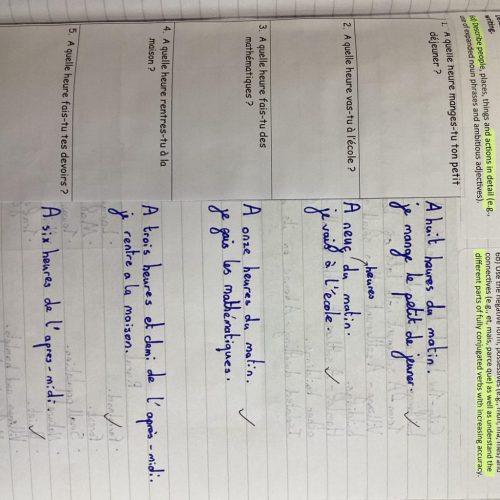 writing.
6a) Describe people, places, things and actions in detail (e.g.,
use of expanded noun phrases and ambitious adjectives).
connectives (e.g., et, mais, parce que) as well as understand the
different parts of fully conjugated verbs with increasing accuracy.
1. A quelle heure manges-tu ton petit
déjeuner ?
A huit heures du matin.
je mange le petit de jeuner.
2. A quelle heure vas-tu à l'école ?
heures
A neuf du matin.
je vais à l'école.
3. A quelle heure fais-tu des
mathématiques ?
A onze heures du matin.
je fais les mathématiques.
4. A quelle heure rentres-tu à la
maison ?
A trois heures et demi de l'après-midi.
je rentre a la maison.
5. A quelle heure fais-tu tes devoirs ?
A six heures de l'apres-midi.